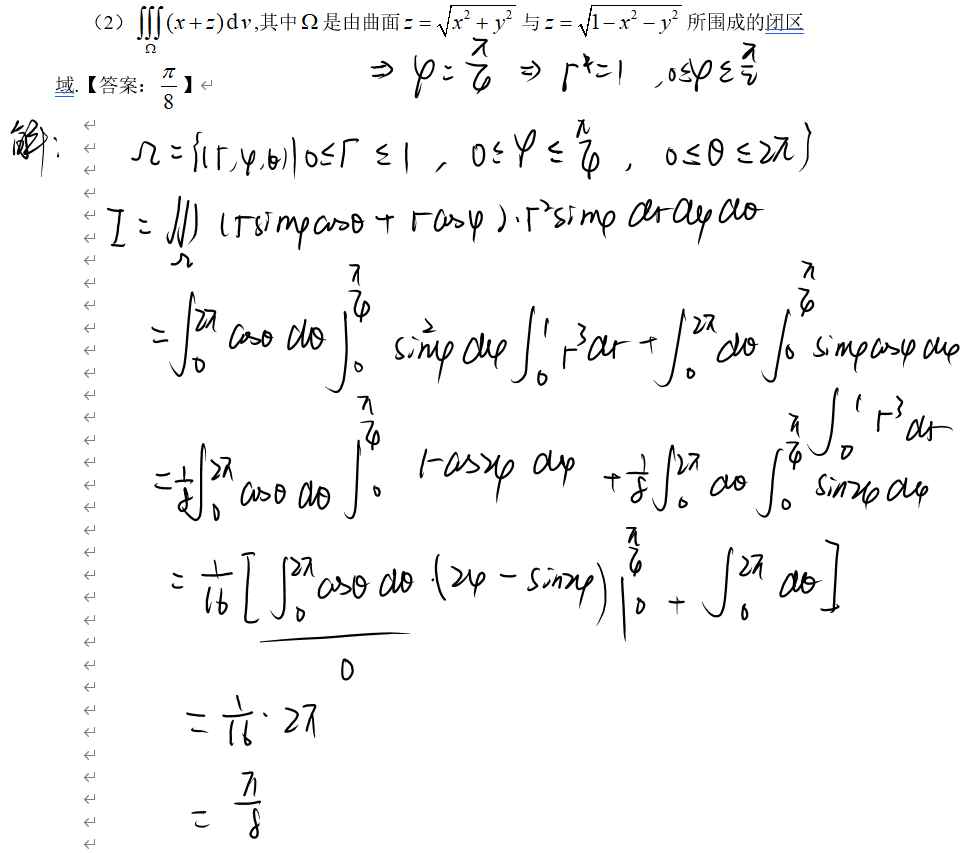 （2）∭_Ω (x+z)dv,其中Ω是由曲面 z=√(x²+y²) 与 z=√(1−x²−y²) 所围成的闭区
⇒ φ=π/4 ⇒ r²=1 ,0≤φ≤π/2
域.【答案：π/8】
解：
Ω={(r,φ,θ)|0≤r≤1 , 0≤φ≤π/4 , 0≤θ≤2π}
I=∭_Ω (rsinφcosθ+rcosφ)·r²sinφ dr dφ dθ
=∫_0^{2π} cosθ dθ ∫_0^{π/4} sin²φ dφ ∫_0^1 r³dr + ∫_0^{2π} dθ ∫_0^{π/4} sinφcosφ dφ
∫_0^1 r³dr
=1/8 ∫_0^{2π} cosθ dθ ∫_0^{π/4} 1-cos2φ dφ + 1/8 ∫_0^{2π} dθ ∫_0^{π/4} sin2φ dφ
=1/16 [∫_0^{2π} cosθ dθ·(2φ-sin2φ)|_0^{π/4} + ∫_0^{2π} dθ]
0
=1/16·2π
=π/8